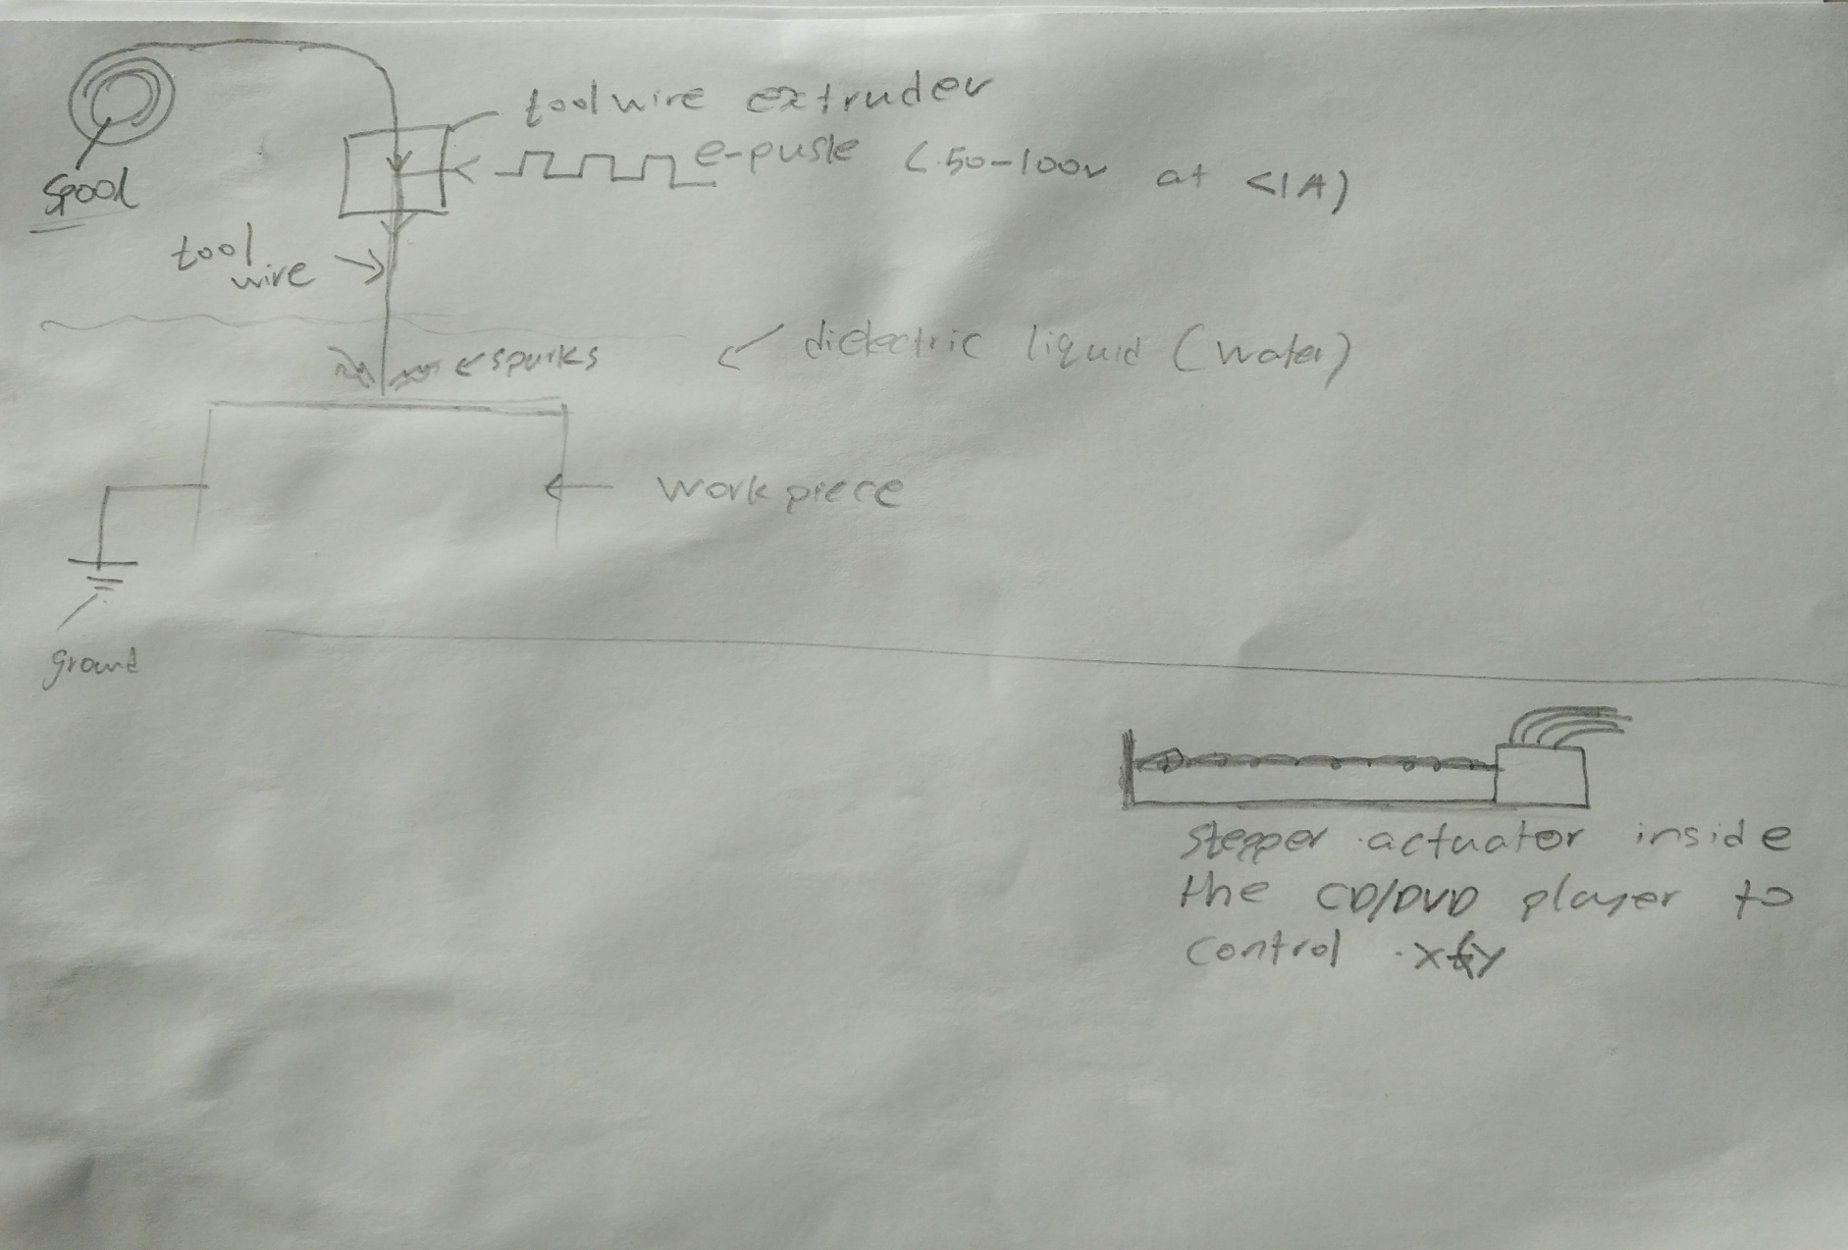 tool wire extruder
e-pusle (50-100v at <1A)
Spool
tool
wire
dielectric liquid (water)
sparks
work piece
ground
stepper actuator inside
the CD/DVD player to
control x&y